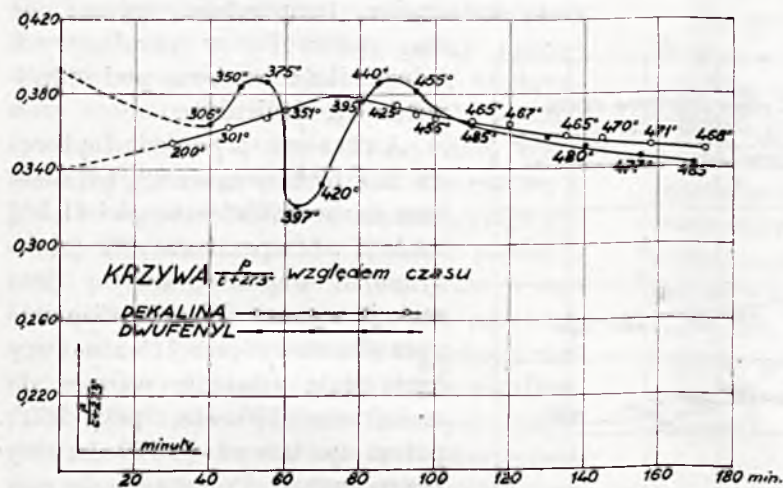 0,420
0,380
0,340
0,300
0,260
0,220
350° 375° 440° 455°
306° 301° 351° 395 425 456 465° 467° 465° 470° 471° 468°
200° 485° 480° 477° 465°
397° 420°
KRZYWA p/t+273° względem czasu
DEKALINA
DWUFENYL
p/t+273°
minuty
20 40 60 80 100 120 140 160 180 min.